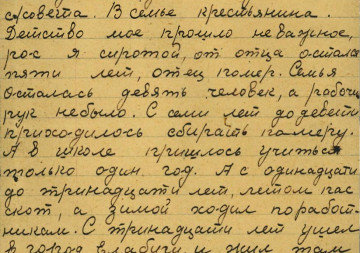 с/совета. В семье крестьянина.
Детство мое прошло неважное,
рос я сиротой, от отца остался
пяти лет, отец помер. Семья
осталась девять человек, а рабочих
рук небыло. С семи лет до девети
приходилось сбирать померу.
А в школе пришлось учиться
только один год. А с одинадцати
до тринадцати лет, летом пас
скот, а зимой ходил по работ-
никам. С тринадцати лет ушел
в город Елабугу и жил там